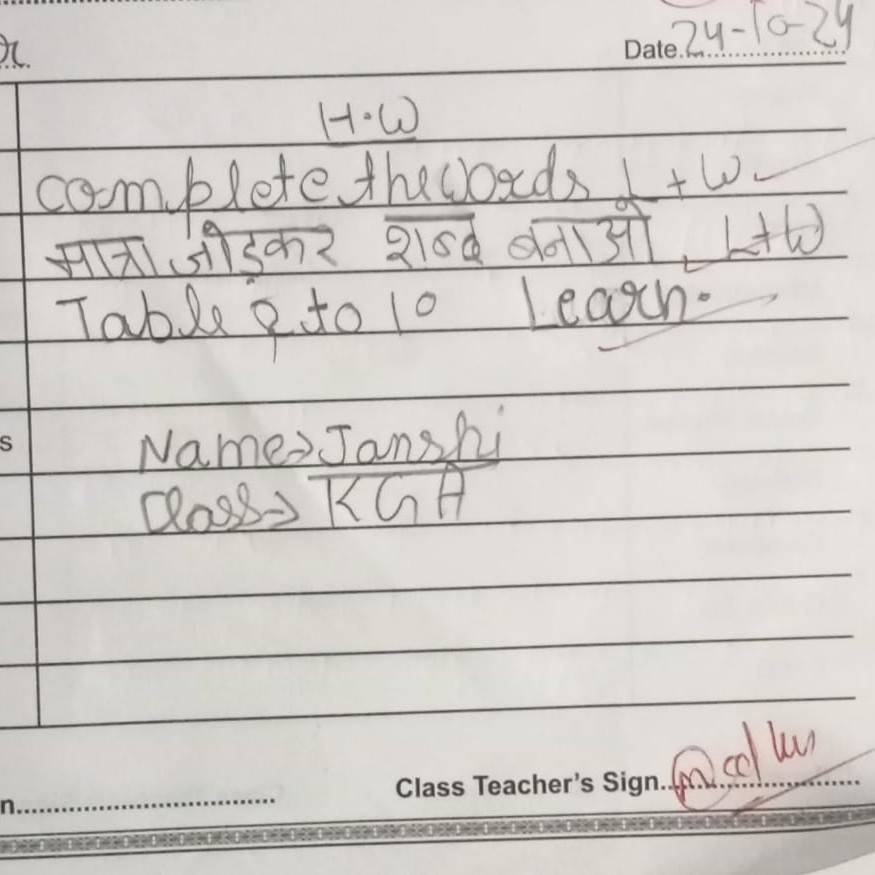 Date. 24-10-24
H.W
complete the words L + W
मात्रा जोड़कर शब्द बनाओ L+W
Table 2 to 10 Learn.
Name→ Janshi
Class→ KG A
Class Teacher's Sign.